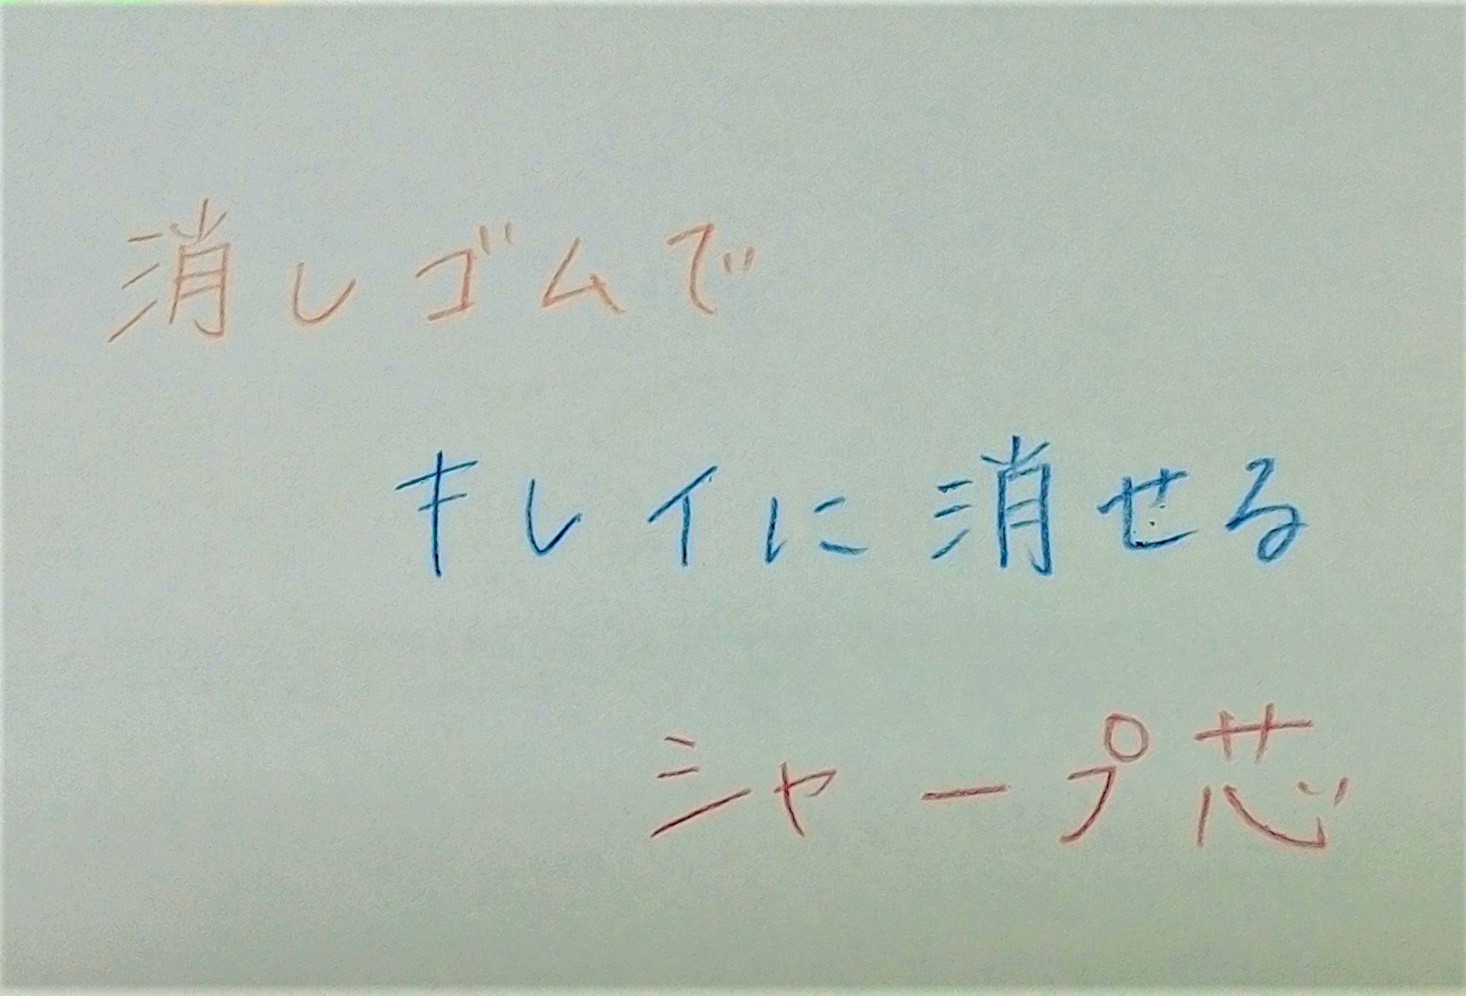 消しゴムで
キレイに消せる
シャープ芯